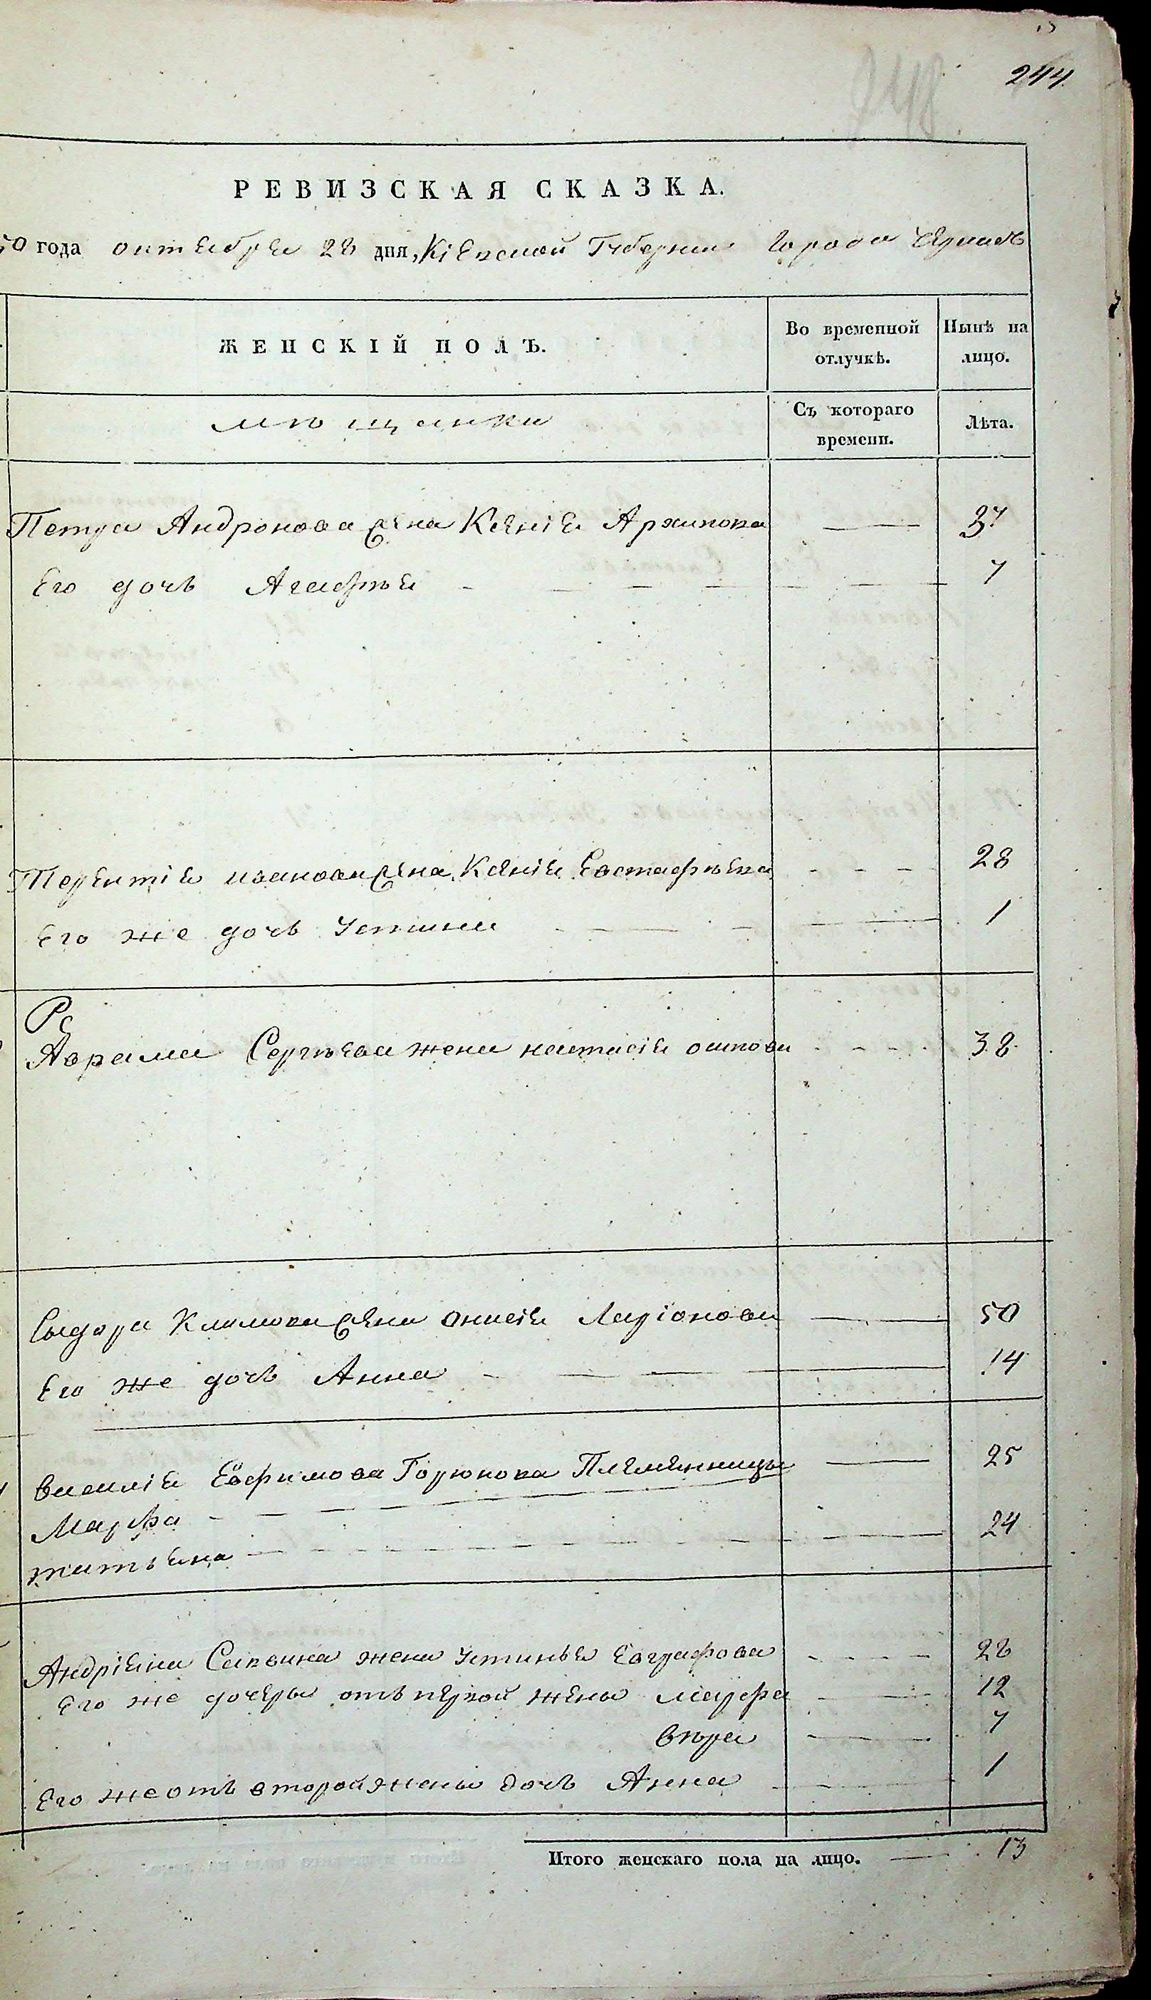 244
248
РЕВИЗСКАЯ СКАЗКА.
50 года октебре 28 дня, Кіевской Губерніи Города
ЖЕНСКІЙ ПОЛЪ.
Во временной отлучкѣ.
Ныне на лицо.
мѣщанки
Съ котораго времени.
Лѣта.
Петра Андронова жена Ксенія Архипова 37
Его дочь Агафія 7
Терентія иванова жена Ксенія Евстафьева 28
Его же дочь Устина 1
Аврама Сергѣева жена настасія осипова 38
Сыдора Климова жена Анисія Ларіонова 50
Его же дочь Анна 14
василіе Ефимова Горюнова Племянницы 25
Марфа
татьена 24
Андріена Савина жена устинья Евграфова 28
Его же дочеры отъ первой жены марфа 12
вѣра 7
Его же отъ второй жены дочь Анна 1
Итого женскаго пола на лицо. 13